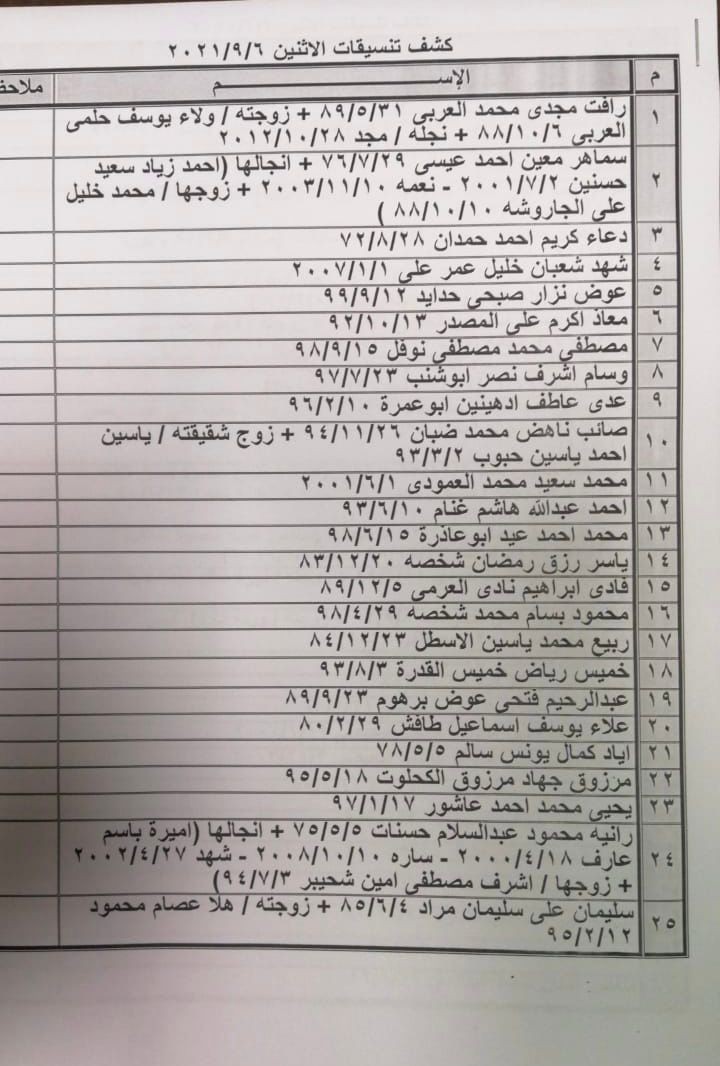 كشف تنسيقات الاثنين ٢٠٢١/٩/٦
م الإســــــــــم ملاحظ
١ رافت مجدى محمد العربى ٨٩/٥/٣١ + زوجته / ولاء يوسف حلمى
العربى ٨٨/١٠/٦ + نجله / مجد ٢٠١٢/١٠/٢٨
سماهر معين احمد عيسى ٧٦/٧/٢٩ + انجالها (احمد زياد سعيد
٢ حسنين ٢٠٠١/٧/٢ - نعمه ٢٠٠٣/١١/١٠ + زوجها / محمد خليل
على الجاروشه ٨٨/١٠/١٠ )
٣ دعاء كريم احمد حمدان ٧٢/٨/٢٨
٤ شهد شعبان خليل عمر على ٢٠٠٧/١/١
٥ عوض نزار صبحى حدايد ٩٩/٩/١٢
٦ معاذ اكرم على المصدر ٩٢/١٠/١٣
٧ مصطفى محمد مصطفى نوفل ٩٨/٩/١٥
٨ وسام اشرف نصر ابوشنب ٩٧/٧/٢٣
٩ عدى عاطف ادهينين ابوعمرة ٩٦/٢/١٠
١٠ صائب ناهض محمد ضبان ٩٤/١١/٢٦ + زوج شقيقته / ياسين
احمد ياسين حبوب ٩٣/٣/٢
١١ محمد سعيد محمد العمودى ٢٠٠١/٦/١
١٢ احمد عبدالله هاشم غنام ٩٣/٦/١٠
١٣ محمد احمد عيد ابوعاذرة ٩٨/٦/١٥
١٤ ياسر رزق رمضان شخصه ٨٣/١٢/٢٠
١٥ فادى ابراهيم نادى العرمى ٨٩/١٢/٥
١٦ محمود بسام محمد شخصه ٩٨/٤/٢٩
١٧ ربيع محمد ياسين الاسطل ٨٤/١٢/٢٣
١٨ خميس رياض خميس القدرة ٩٣/٨/٣
١٩ عبدالرحيم فتحى عوض برهوم ٨٩/٩/٢٣
٢٠ علاء يوسف اسماعيل طافش ٨٠/٢/٢٩
٢١ اياد كمال يونس سالم ٧٨/٥/٥
٢٢ مرزوق جهاد مرزوق الكحلوت ٩٥/٥/١٨
٢٣ يحيى محمد احمد عاشور ٩٧/١/١٧
رانيه محمود عبدالسلام حسنات ٧٥/٥/٥ + انجالها (اميرة باسم
٢٤ عارف ٢٠٠٠/٤/١٨ - ساره ٢٠٠٨/١٠/١٠ - شهد ٢٠٠٢/٤/٢٧
+ زوجها / اشرف مصطفى امين شحيبر ٩٤/٧/٣)
٢٥ سليمان على سليمان مراد ٨٥/٦/٤ + زوجته / هلا عصام محمود
٩٥/٢/١٢